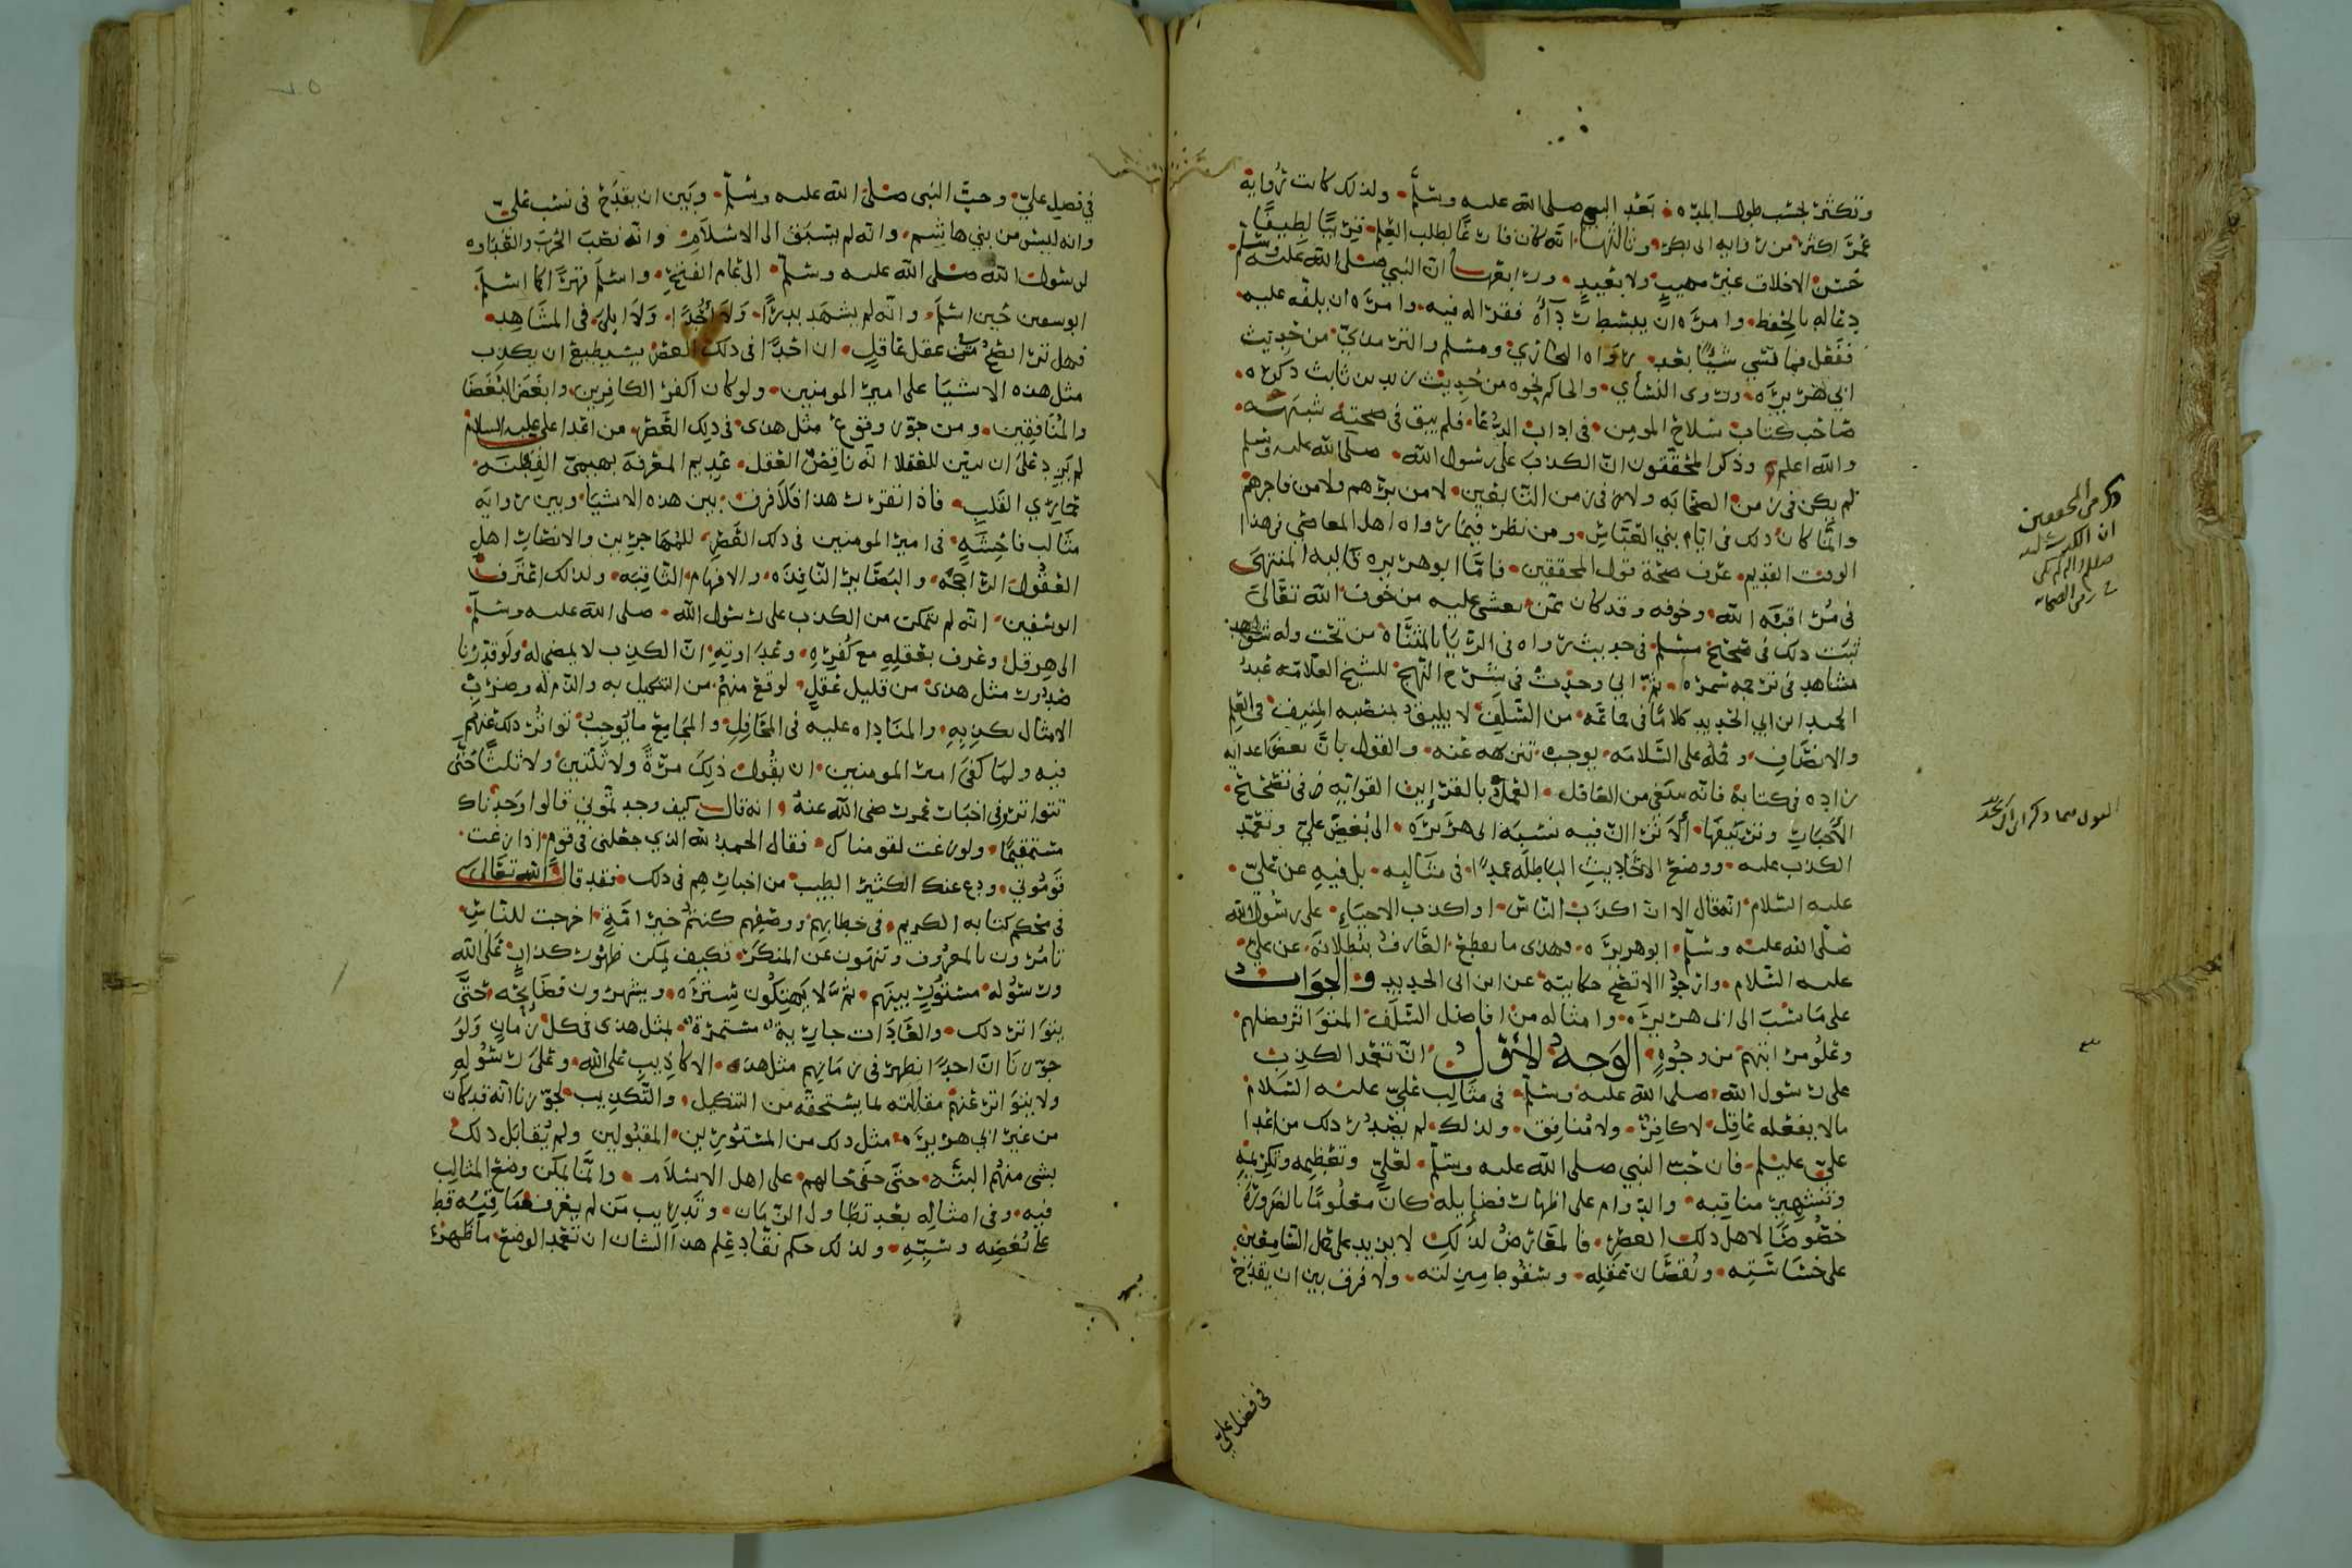 وتكثر بحسب طول المده بعد النبي صلى الله عليه وسلم ولذلك كانت رواية
عمر اكثر من رواية ابى بكر وثالثها انه كان فارغا لطلب العلم قريبا لطيفا
حسن الاخلاق غير مهيب ولا بعيد ورابعها ان النبي صلى الله عليه وسلم
دعا له بالحفظ وامره ان يبسط رداه فقرا له فيه وامره ان يلفه عليه
ففعل فما نسي شيئا بعد رواه البخاري ومسلم والترمذي من حديث
ابي هريره وروى النسأي والحاكم نحوه من حديث زيد بن ثابت ذكره
صاحب كتاب سلاح المومن في اداب الدعا فلم يبق في صحته شبهه
والله اعلم وذكر المحققون ان الكذب على رسول الله صلى الله عليه وسلم
لم يكن في زمن الصحابه ولا في زمن التابعين لا من برهم ولا من فاجرهم
وانما كان ذلك في ايام بني العباس ومن نظر فيما رواه اهل المعاصي في هذا
الوقت القديم عرف صحة قول المحققين فاما ابو هريره فاليه المنتهى
في مراقبة الله وخوفه وقد كان ممن يغشى عليه من خوف الله تعالى
ثبت ذلك في صحيح مسلم في حديث رواه في الريا بالمثناة من تحت وله شواهد
مشاهد في ترجمه شمره ثم اني وجدت في شرح النهج للشيخ العلامه عبد
الحميد ابن ابي الحديد كلاما في جماعه من السلف لا يليق بمنصبه المنيف في العلم
والانصاف وحمله على السلامه يوجب تنزيهه عنه والقول بان بعض اعدايه
زاده في كتابه فانه ينبغي من العاقل العمل بالقراين القوايه في تصحيح
الاخبار وتزييفها ألا ترى ان فيه نسبة ابى هريرة الى بغض علي وتعمد
الكذب عليه ووضع الاحاديث الباطله عمدا في مثالبه بل فيه عن علي
عليه السلام انه قال الا ان اكذب الناس او اكذب الاحياء على رسول الله
صلى الله عليه وسلم ابو هريره وهذى ما يقطع العارف ببطلانه عن علي
عليه السلام وارجوا الا تصح حكايته عن ابن ابى الحديد والجواب
على ما نسب الى ابى هريره وامثاله من افاضل السلف المتواتر فضلهم
وعلو مراتبهم من وجوه الوجه الأول ان تعمد الكذب
على رسول الله صلى الله عليه وسلم في مثالب علي عليه السلام
مالا يفعله عاقل لا كافر ولا منافق ولذلك لم يصدر ذلك من اعدا
علي عليلم فان حب النبي صلى الله عليه وسلم لعلي وتعظيمه وتكريمه
وتشهير مناقبه والدوام على اظهار فضايله كان معلوما بالضرورة
خصوصا لاهل ذلك العصر فالمعارض لذلك لا يزيد على حمل السامعين
على خساسته ونقصان عقله وسقوط منزلته ولا فرق بين ان يقدح
في فضل علي
ذكر من المحققين
ان الكذب عليه
صلعم والم لم يكن
في زمن الصحابه
القول فيما ذكر ابن ابى الحديد
في فضل علي وحب النبى صلى الله عليه وسلم وبين ان يقدح في نسب علي
وانه ليس من بني هاشم وانه لم يسبق الى الاسلام وانه نصب الحرب والعداوه
لرسول الله صلى الله عليه وسلم الى عام الفتح واسلم قهرا كما اسلم
ابو سفين حين اسلم وانه لم يشهد بدرا ولا أحدا ولا ابلى في المشاهد
فهل ترى يصح من عقل عاقل ان احدا في ذلك العصر يستطيع ان يكذب
مثل هذه الاشيا على امير المومنين ولو كان اكفر الكافرين وابغض البغضا
والمنافقين ومن جوز وقوع مثل هذى في ذلك العصر من اعدا علي عليه السلام
لم يزد على ان يبين للعقلا انه ناقص العقل عديم المعرفة بهيمي الفطنه
حماري القلب فاذا تقرر هذا فلا فرق بين هذه الاشيا وبين رواية
مثالب فاحشه في امير المومنين في ذلك العصر للمهاجرين والانصار اهل
العقول الراجحه والبصاير النافذه والافهام الثاقبه ولذلك اعترف
ابو سفين انه لم يتمكن من الكذب على رسول الله صلى الله عليه وسلم
الى هرقل وعرف بعقله مع كفره وعداوته ان الكذب لا يمضى له ولو قدرنا
صدور مثل هذى من قليل عقل لوقع منهم من التنكيل به والذم له وضرب
الامثال بكذبه والمناداه عليه في المحافل والمجامع ما يوجب تواتر ذلك عنهم
فيه ولما كفى امير المومنين ان يقول ذلك مرة ولا ثنتين ولا ثلثا حتى
تتواتر وفى اخبار عمر رضى الله عنه انه قال كيف وجدتموني قالوا وجدناك
مستقيما ولو زغت لقومناك فقال الحمد لله الذي جعلني في قوم اذا زغت
قوموني ودع عنك الكثير الطيب من اخبارهم في ذلك فقد قال الله تعالى
في محكم كتابه الكريم في خطابهم ووصفهم كنتم خير امة اخرجت للناس
تامرون بالمعروف وتنهون عن المنكر فكيف يمكن ظهور كذاب على الله
ورسوله مستور بينهم ثم لا يهتكون ستره ويشهرون فضايحه حتى
يتواتر ذلك والعادات جاريه مستمرة بمثل هذى في كل زمان ولو
جوزنا ان احدا يظهر في زمانهم مثل هذه الاكاذيب على الله وعلى رسوله
ولا يتواتر عنهم مقابلته لما يستحقه من التنكيل والتكذيب لجوزنا انه قد كان
من غير ابي هريره مثل ذلك من المستورين المقبولين ولم يقابل ذلك
بشى منهم البته حتى خفى حالهم على اهل الاسلام وانما يمكن وضع المثالب
فيه وفى امثاله بعد تطاول الزمان وتدريب من لم يعرف مناقبه قط
على بغضه وسبه ولذلك حكم نقاد علم هذا الشان ان تعمد الوضع ما ظهر